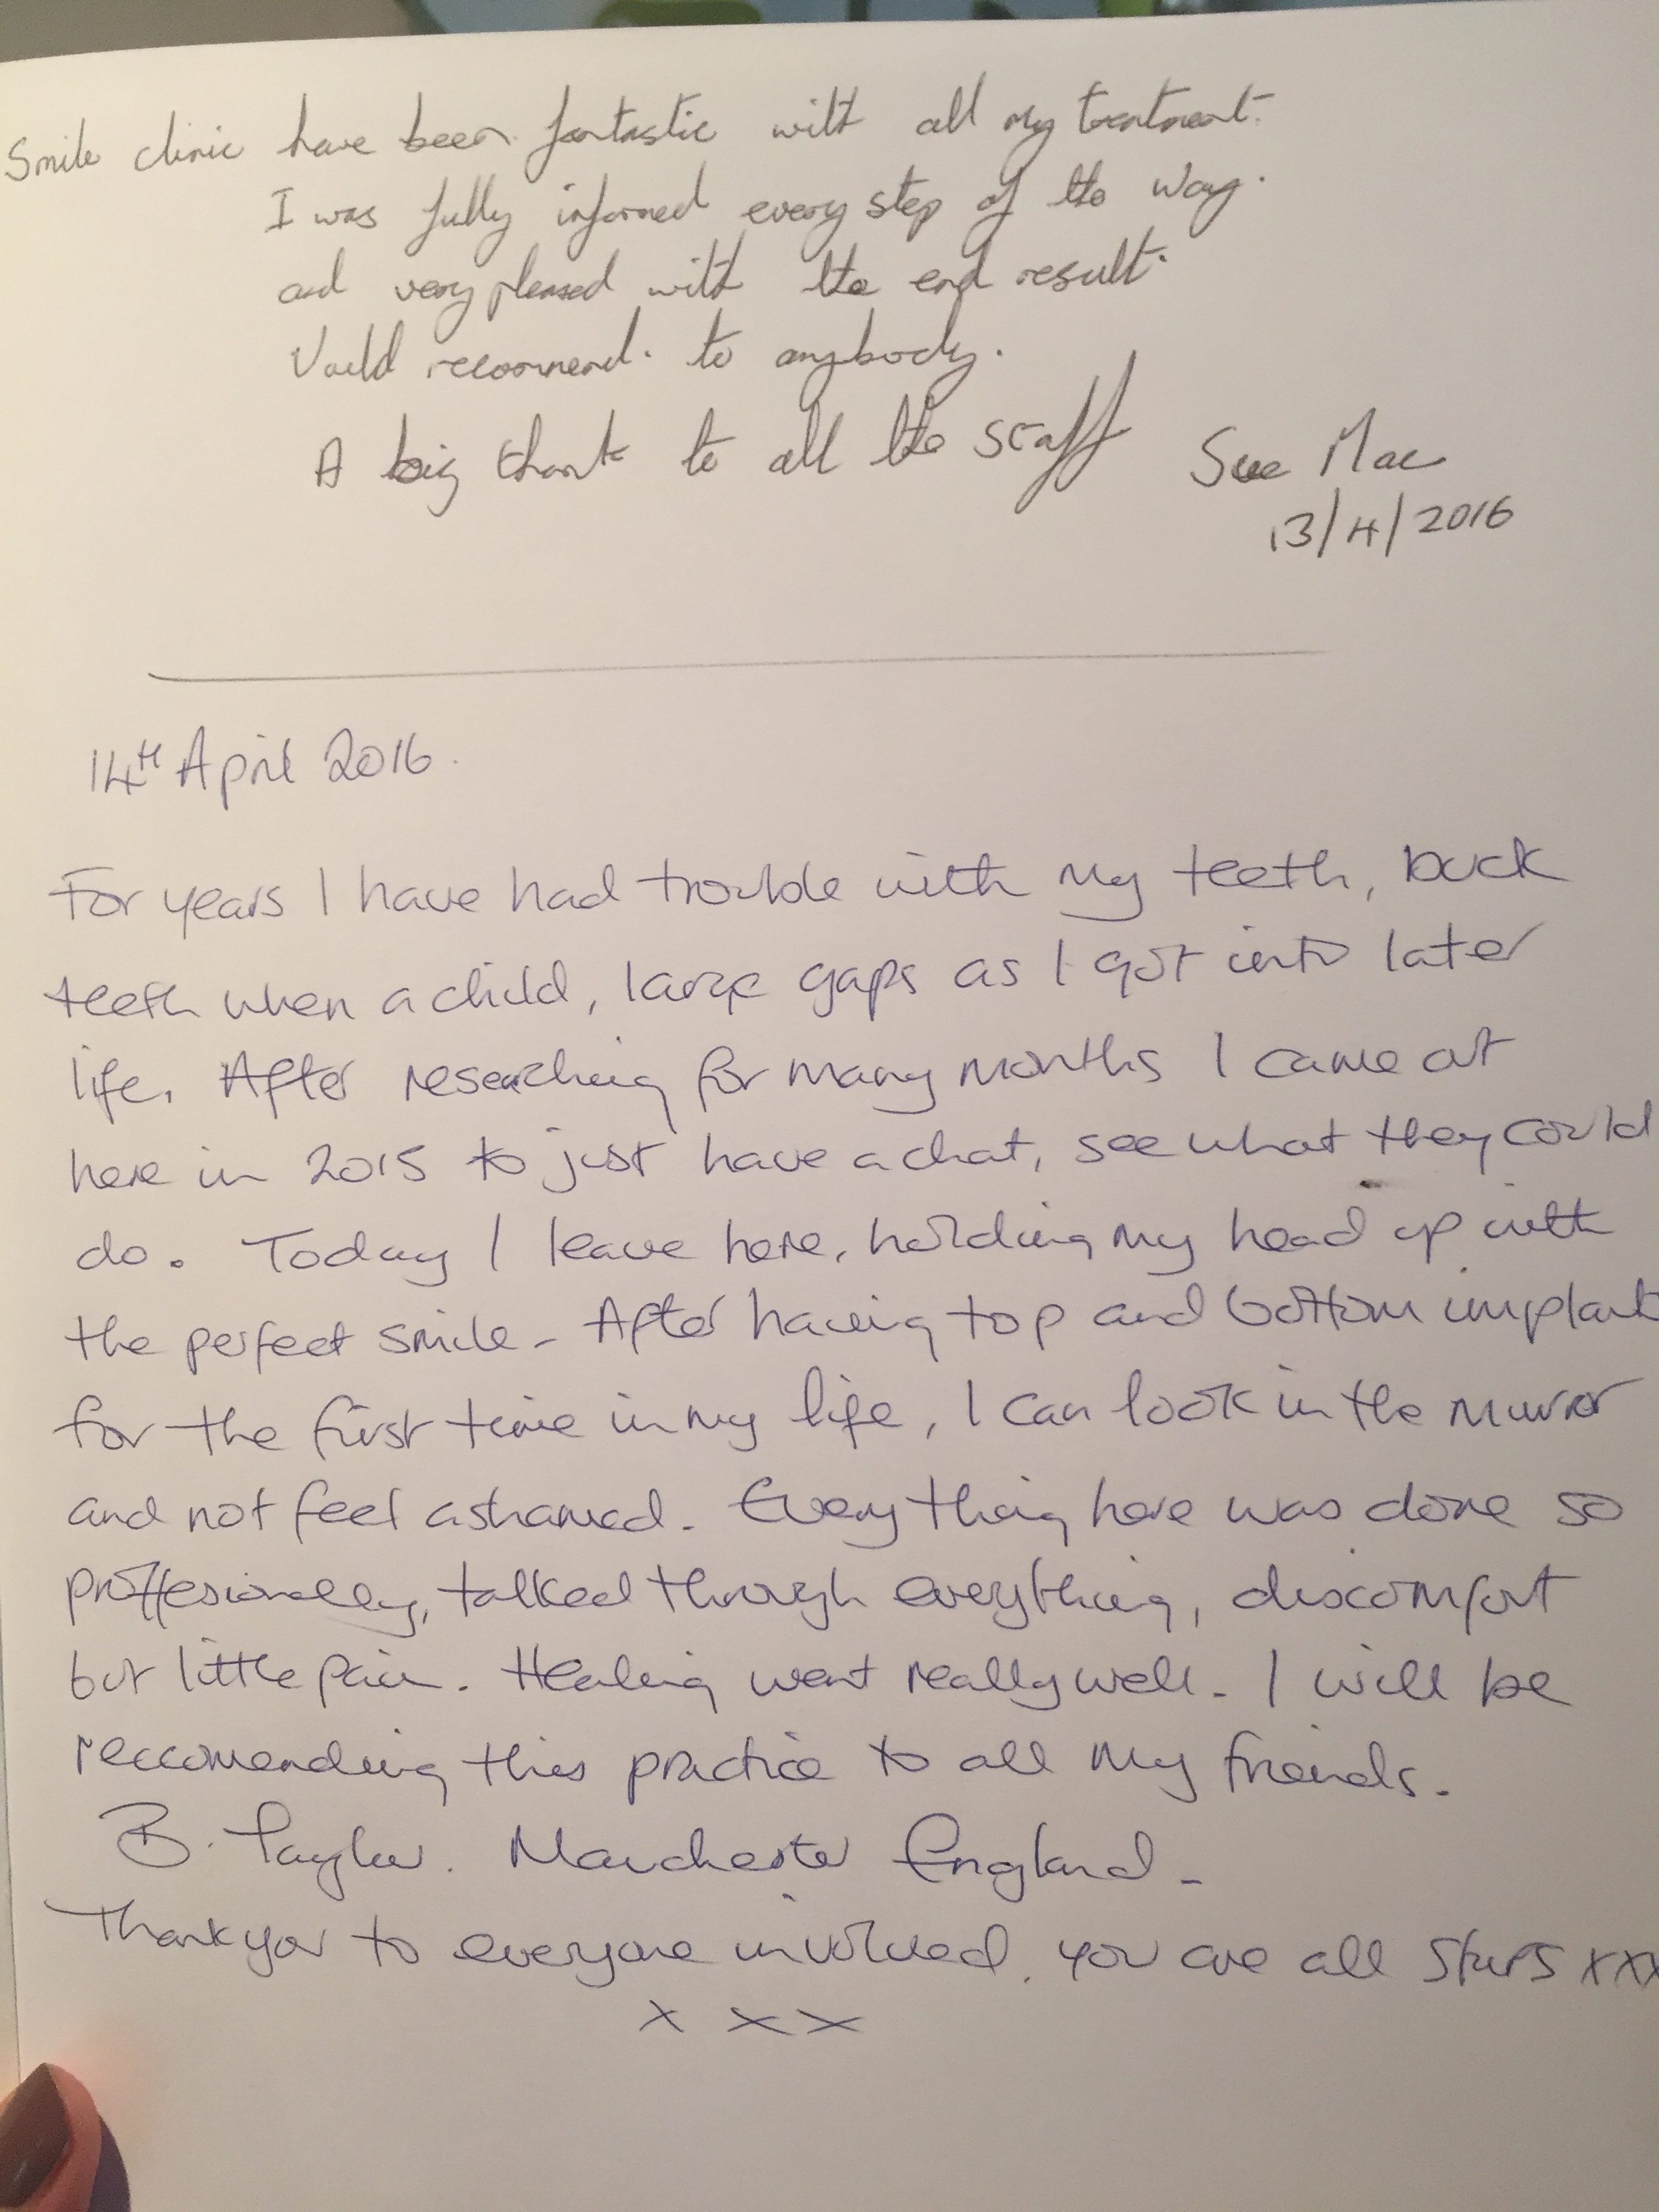 Smile clinic have been fantastic with all my treatment.
I was fully informed every step of the way.
and very pleased with the end result.
Would recommend. to anybody.
A big thank to all the staff
Sue Mac
13/4/2016
14TH April 2016.
For years I have had trouble with my teeth, buck
teeth when a child, large gaps as I got into later
life. After researching for many months I came at
here in 2015 to just have a chat, see what they could
do. Today I leave here, holding my head up with
the perfect smile - After having top and bottom implants
for the first time in my life, I can look in the mirror
and not feel ashamed. Everything here was done so
proffesionally, talked through everything, discomfort
but little pain. Healing went really well - I will be
reccomending this practice to all my friends.
B. Taylor. Manchester England -
Thankyou to everyone involved. you are all stars xxx
x x x